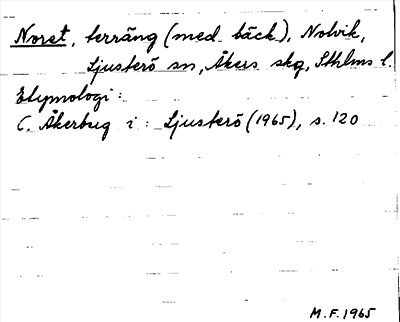 Noret, terräng (med bäck), Nolvik,
Ljusterö sn, Åkers skg, Sthlms l.
Etymologi:
C. Åkerberg i: Ljusterö (1965), s. 120
M.F. 1965